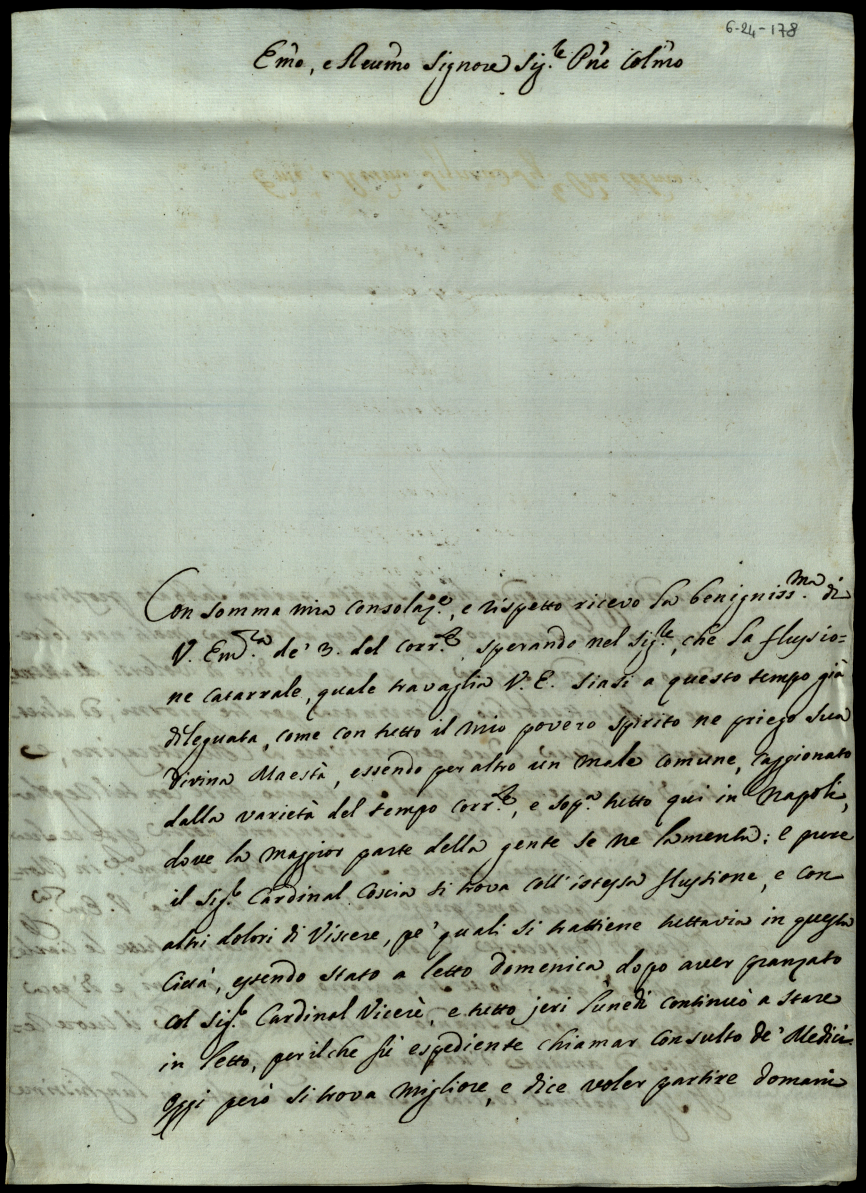 6-24-178
Emo, e Reumo Signore Sig.le Pne Colmo
Con somma mia consolaz.e, e rispetto ricevo la benigniss.ma di
V. Em.za de' 3. del corr.te, sperando nel sig.re, che la flussio=
ne catarrale, quale travaglia V. E. siasi a questo tempo già
dileguata, come con tutto il mio povero spirito ne priego sua
Divina Maestà, essendo per altro un male comune, caggionato
dalla varietà del tempo corr.te, e sop.a tutto qui in Napoli,
dove la maggior parte della gente se ne lamenta; e pure
il Sig.r Cardinal Coscia si trova coll'istessa flussione, e con
altri dolori di Viscere, pe' quali si trattiene tuttavia in questa
Città, essendo stato a letto Domenica dopo aver pranzato
col Sig.r Cardinal Vicerè, e tutto jeri Lunedì continuò a stare
in letto, perilche fù espediente chiamar Consulto de' Medici=
Oggi però si trova migliore, e dice voler partire domani